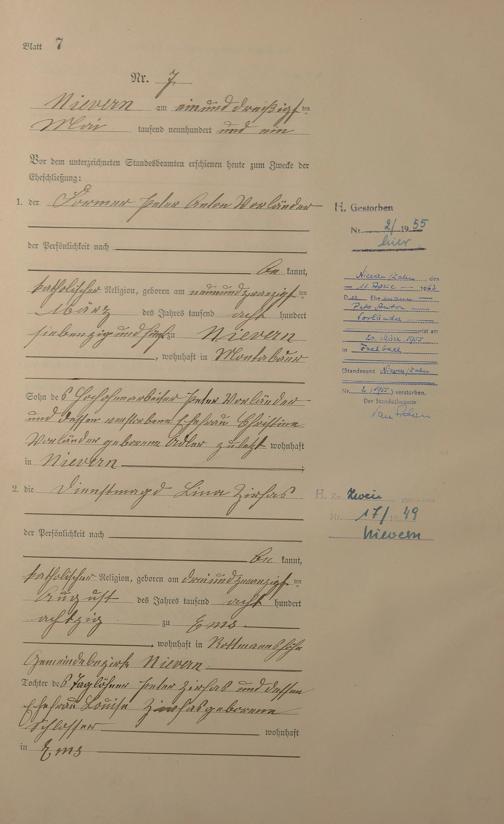 Blatt 7
Nr. 7.
Nievern am einunddreißigsten
Mai tausend neunhundert und ein
Vor dem unterzeichneten Standesbeamten erschienen heute zum Zwecke der
Eheschließung:
1. der Former Peter Anton Vorländer
der Persönlichkeit nach
be kannt,
katholischer Religion, geboren am neunundzwanzigsten
März des Jahres tausend acht hundert
siebenzig und fünf zu Nievern
, wohnhaft in Montabaur
Sohn des Hochofenarbeiter Peter Vorländer
und dessen verstorbene Ehefrau Christine
Vorländer geborene Adler zuletzt wohnhaft
in Nievern
2. die Dienstmagd Lina Zirfas
der Persönlichkeit nach
be kannt,
katholischer Religion, geboren am dreiundzwanzigsten
August des Jahres tausend acht hundert
achtzig zu Ems
, wohnhaft in
Gemeindebezirk Nievern
Tochter des Taglöhner Peter Zirfas und dessen
Ehefrau Louise Zirfas geborene
Schlosser
wohnhaft
in Ems
H. Gestorben
Nr. 2/1955
hier
Nievern den
11. 19
Peter Anton
Vorländer
ist am
1955
in
(Standesamt Nievern
Nr. 2/1955) verstorben.
Der Standesbeamte
H.
17/1949
Nievern